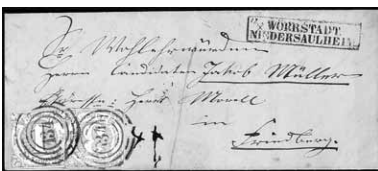 WÖRRSTADT
NIEDERSAULHEIM
Sr Wohlehrwürden
Herrn Candidaten Jakob Müller
Adresse: Herrn Morell
in
Friedberg.